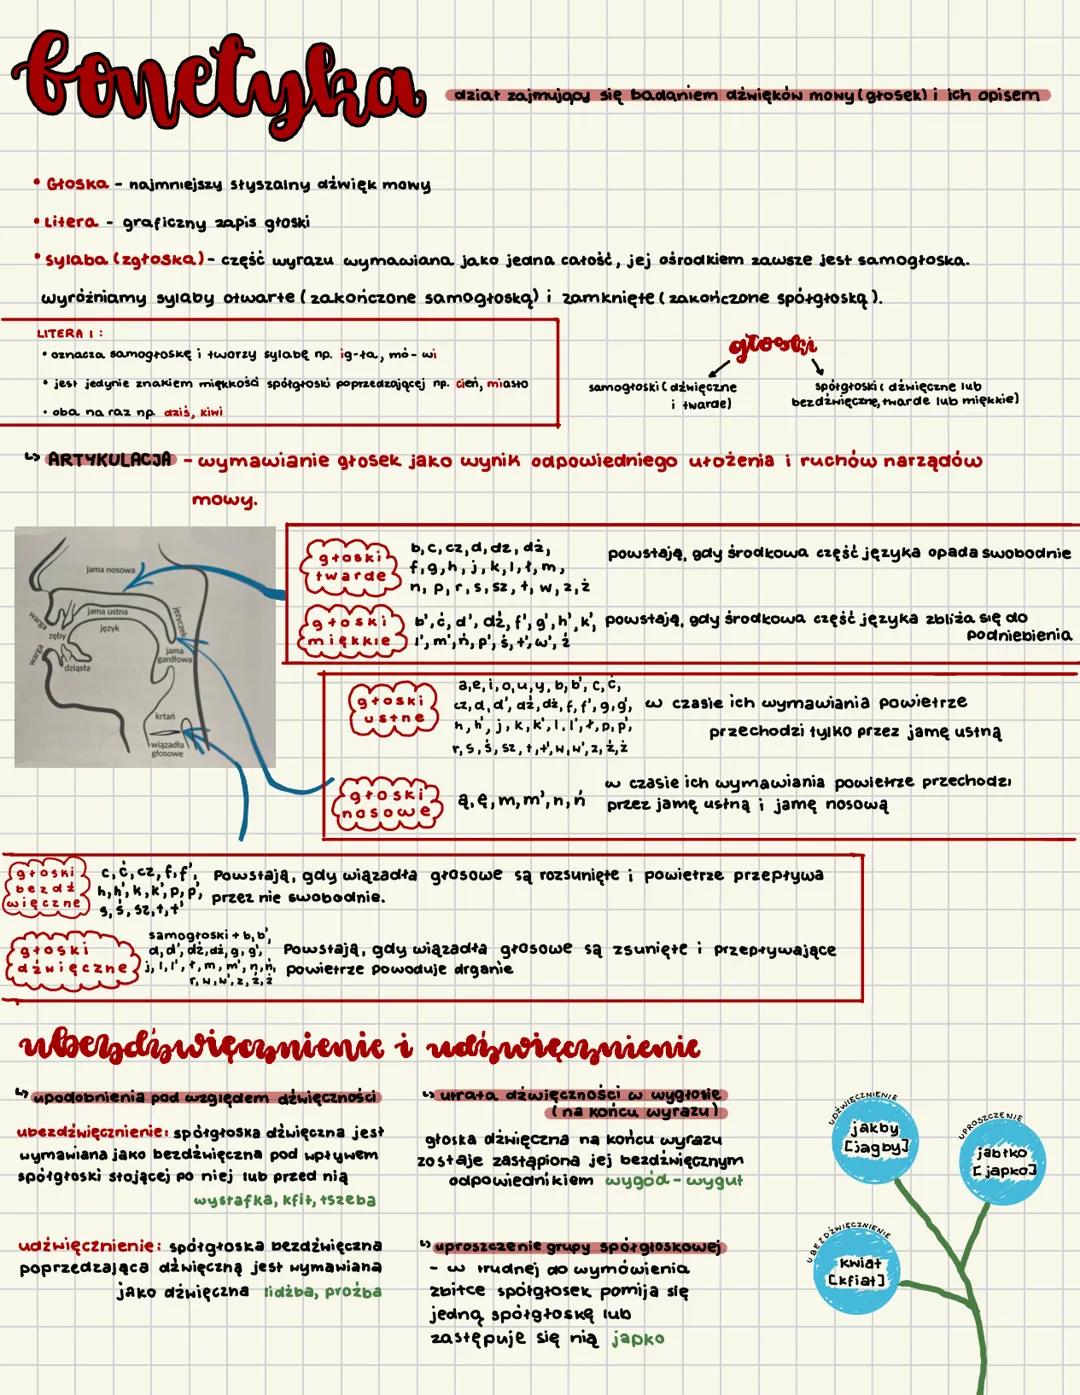 fonetyka
dział zajmujący się badaniem dźwięków mowy (głosek) i ich opisem
• Głoska - najmniejszy słyszalny dźwięk mowy
• Litera - graficzny zapis głoski
• Sylaba (zgłoska) - część wyrazu wymawiana jako jedna całość, jej ośrodkiem zawsze jest samogłoska.
wyróżniamy sylaby otwarte (zakończone samogłoską) i zamknięte (zakończone spółgłoską).
LITERA I:
• oznacza samogłoskę i tworzy sylabę np. ig-ła, mó-wi
• jest jedynie znakiem miękkości spółgłoski poprzedzającej np. cień, miasto
• oba na raz np. dziś, kiwi
głoski
samogłoski (dźwięczne
i twarde)
spółgłoski (dźwięczne lub
bezdźwięczne, twarde lub miękkie)
↳ ARTYKULACJA - wymawianie głosek jako wynik odpowiedniego ułożenia i ruchów narządów
mowy.
jama nosowa
warga
jama ustna
język
zęby
języczek
warga
dziąsła
jama
gardłowa
krtań
wiązadła
głosowe
głoski
twarde
b, c, cz, d, dz, dż,
f, g, h, j, k, l, ł, m,
n, p, r, s, sz, t, w, z, ż
powstają, gdy środkowa część języka opada swobodnie
głoski
miękkie
b', ć, d', dź, f', g', h', k',
l', m', ń, p', ś, t', w', ź
powstają, gdy środkowa część języka zbliża się do
podniebienia
głoski
ustne
a, e, i, o, u, y, b, b', c, ć,
cz, d, d', dź, dż, f, f', g, g',
h, h', j, k, k', l, l', ł, p, p',
r, s, ś, sz, t, t', w, w', z, ż, ź
w czasie ich wymawiania powietrze
przechodzi tylko przez jamę ustną
głoski
nosowe
ą, ę, m, m', n, ń
w czasie ich wymawiania powietrze przechodzi
przez jamę ustną i jamę nosową
głoski
bezdź
więczne
c, ć, cz, f, f',
h, h', k, k', p, p',
s, ś, sz, t, t'
Powstają, gdy wiązadła głosowe są rozsunięte i powietrze przepływa
przez nie swobodnie.
głoski
dźwięczne
samogłoski + b, b',
d, d', dź, dż, g, g',
j, l, l', ł, m, m', n, ń,
r, w, w', z, ż, ź
Powstają, gdy wiązadła głosowe są zsunięte i przepływające
powietrze powoduje drganie
ubezdźwięcznienie i udźwięcznienie
↳ upodobnienia pod względem dźwięczności
ubezdźwięcznienie: spółgłoska dźwięczna jest
wymawiana jako bezdźwięczna pod wpływem
spółgłoski stojącej po niej lub przed nią
wystafka, kfit, tszeba
udźwięcznienie: spółgłoska bezdźwięczna
poprzedzająca dźwięczną jest wymawiana
jako dźwięczna lidźba, proźba
↳ utrata dźwięczności w wygłosie
(na końcu wyrazu)
głoska dźwięczna na końcu wyrazu
zostaje zastąpiona jej bezdźwięcznym
odpowiednikiem wygód - wygut
↳ uproszczenie grupy spółgłoskowej
- w trudnej do wymówienia
zbitce spółgłosek pomija się
jedną spółgłoskę lub
zastępuje się nią japko
UDŹWIĘCZNIENIE
jakby
[jagby]
UPROSZCZENIE
jabłko
[japko]
UBEZDŹWIĘCZNIENIE
kwiat
[kfiat]